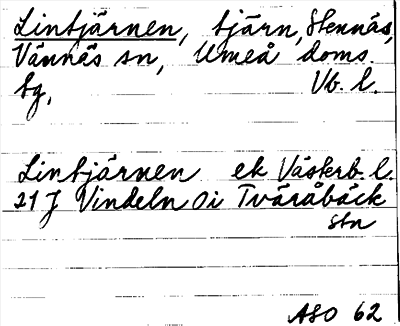 Lintjärnen, tjärn, Stennäs,
Vännäs sn, Umeå doms.
tg, Vb. l.
Lintjärnen ek Västerb. l.
21 J Vindeln Oi Tväråbäck
stn
ASO 62